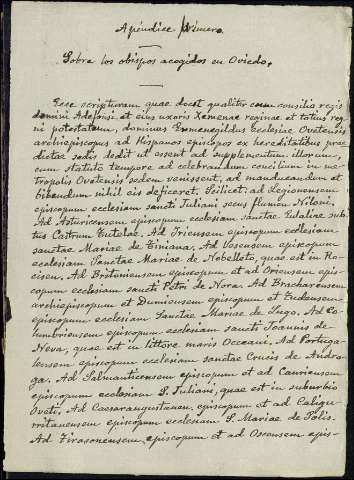 Apéndice Primero.
Sobre los obispos acogidos en Oviedo.
Ecce scripturam quae docet qualiter cum consilio regis
domini Adefonsi et ejus uxoris Xemenae reginae et totius reg
ni potestatum, dominus Ermenegildus ecclesiae Ovetensis
archiepiscopus ad Hispanos episcopos ex hereditatibus prae
dictae sedis dedit ut essent ad supplementum illorum,
cum statuto tempore ad celebrandum concilium in me
tropolis Ovetensis sedem venissent, ad manducandum et
bibendum nihil eis deficeret. Scilicet, ad Legionensem
episcopum ecclesiam sancti Juliani secus fluvium Niloni.
Ad Asturicensem episcopum ecclesiam sanctae Eulaliae sub
tus Castrum Tutelae. Ad Iriensem episcopum ecclesiam
sanctae Mariae de Tiniana. Ad Vesensem episcopum
ecclesiam Sanctae Mariae de Nobelleto, quae est in Ro
cisen. Ad Britoniensem episcopum et ad Oriensem epis-
copum ecclesiam sancti Petri de Nora. Ad Bracharensem
archiepiscopum et Dumiensem episcopum et Tudensem
episcopum ecclesiam Sanctae Mariae de Lugo. Ad Co
lumbriensem episcopum ecclesiam sancti Joannis de
Neva, quae est in littore maris Occeani. Ad Portuga-
lensem episcopum ecclesiam sanctae Crucis de Andro-
ga. Ad Salmanticensem episcopum et ad Cauriensem
episcopum ecclesiam S. Juliani, quae est in suburbio
Oveti. Ad Caesaraugustanum episcopum et ad Caligu-
rritanensem episcopum ecclesiam S. Mariae de Solis.
Ad Tirasonensem episcopum et ad Oscensem epis-